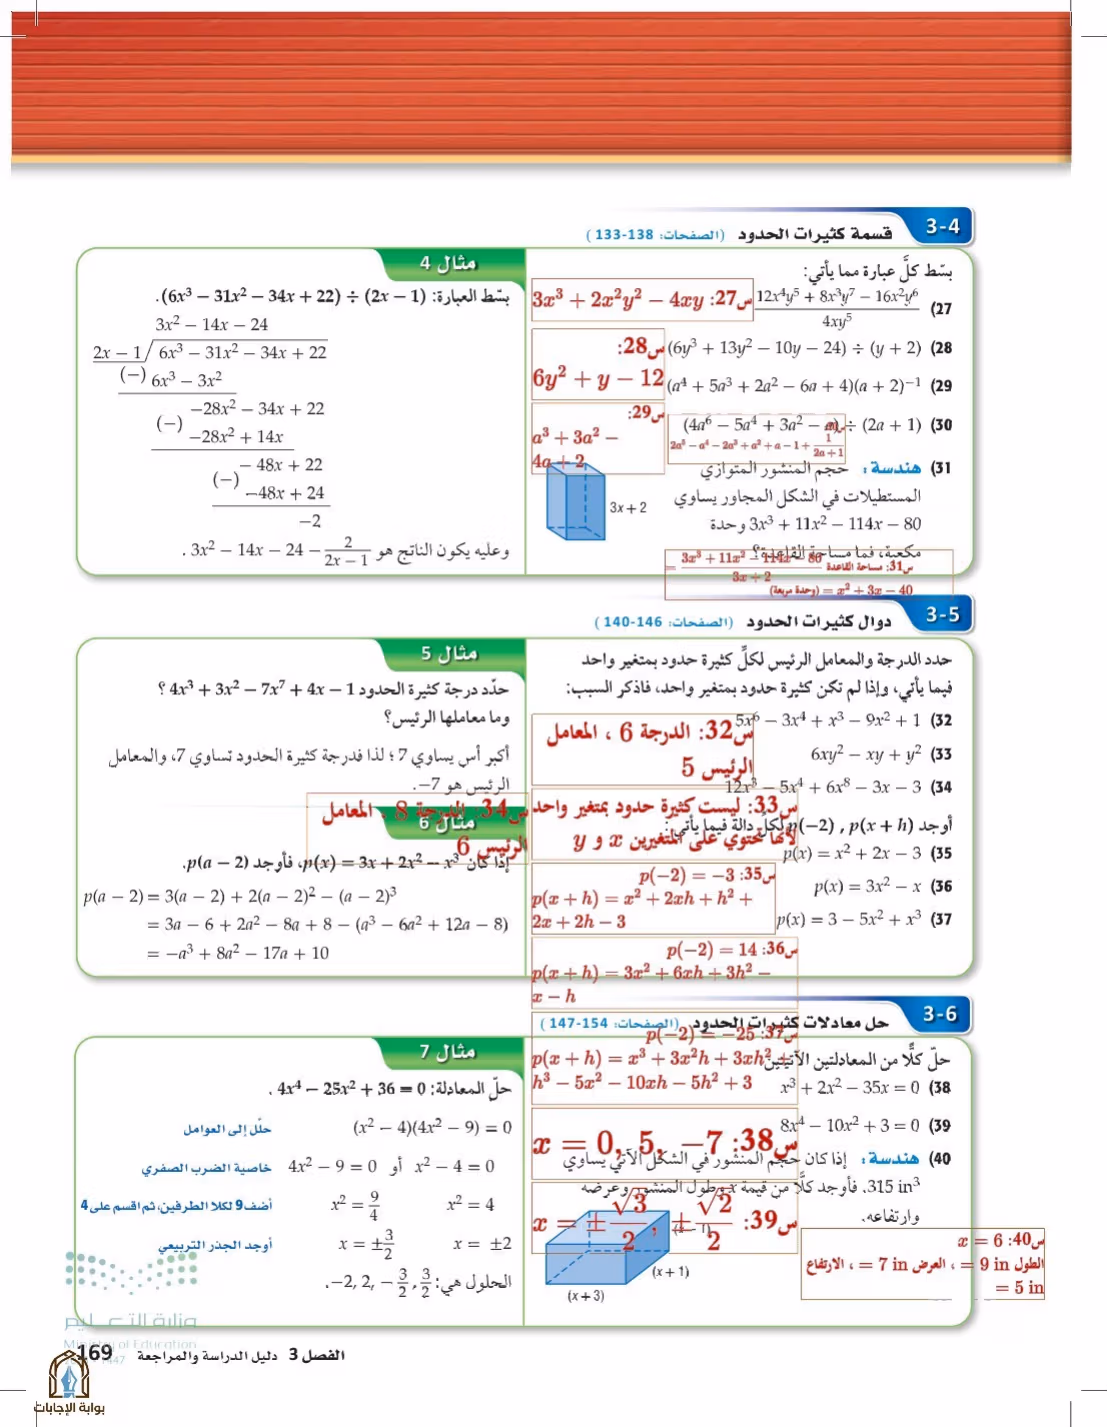 3-4
قسمة كثيرات الحدود (الصفحات: 138-133)
بسّط كلَّ عبارة مما يأتي:
27) (12x⁴y⁵ + 8x³y⁷ − 16x²y⁶) / 4xy⁵
س27: 3x³ + 2x²y² − 4xy
28) (6y³ + 13y² − 10y − 24) ÷ (y + 2)
س28:
6y² + y − 12
29) (a⁴ + 5a³ + 2a² − 6a + 4)(a + 2)⁻¹
س29:
a³ + 3a² −
4a + 2
30) (4a⁶ − 5a⁴ + 3a² − a) ÷ (2a + 1)
2a⁵ − a⁴ − 2a³ + a² + a − 1 + 1/(2a+1)
31) هندسة: حجم المنشور المتوازي
المستطيلات في الشكل المجاور يساوي
3x³ + 11x² − 114x − 80 وحدة
مكعبة، فما مساحة القاعدة؟
3x + 2
س31: مساحة القاعدة = (3x³ + 11x² − 114x − 80) / (3x + 2)
= x² + 3x − 40 (وحدة مربعة)
مثال 4
بسّط العبارة: (6x³ − 31x² − 34x + 22) ÷ (2x − 1).
3x² − 14x − 24
2x − 1 / 6x³ − 31x² − 34x + 22
(−) 6x³ − 3x²
−28x² − 34x + 22
(−) −28x² + 14x
− 48x + 22
(−) −48x + 24
−2
وعليه يكون الناتج هو 3x² − 14x − 24 − 2/(2x − 1) .
3-5
دوال كثيرات الحدود (الصفحات: 146-140)
حدد الدرجة والمعامل الرئيس لكلِّ كثيرة حدود بمتغير واحد
فيما يأتي، وإذا لم تكن كثيرة حدود بمتغير واحد، فاذكر السبب:
32) 5x⁶ − 3x⁴ + x³ − 9x² + 1
س32: الدرجة 6 ، المعامل
الرئيس 5
33) 6xy² − xy + y²
34) 12x³ − 5x⁴ + 6x⁸ − 3x − 3
س33: ليست كثيرة حدود بمتغير واحد
لأنها تحتوي على المتغيرين x و y
س34: الدرجة 8 ، المعامل
الرئيس 6
أوجد p(−2) , p(x + h) لكل دالة فيما يأتي:
35) p(x) = x² + 2x − 3
س35: p(−2) = −3
p(x + h) = x² + 2xh + h² +
2x + 2h − 3
36) p(x) = 3x² − x
37) p(x) = 3 − 5x² + x³
س36: p(−2) = 14
p(x + h) = 3x² + 6xh + 3h² −
x − h
س37: p(−2) = −25
p(x + h) = x³ + 3x²h + 3xh² +
h³ − 5x² − 10xh − 5h² + 3
مثال 5
حدّد درجة كثيرة الحدود 4x³ + 3x² − 7x⁷ + 4x − 1 ؟
وما معاملها الرئيس؟
أكبر أس يساوي 7 ؛ لذا فدرجة كثيرة الحدود تساوي 7، والمعامل
الرئيس هو 7−.
مثال 6
إذا كان p(x) = 3x + 2x² − x³، فأوجد p(a − 2).
p(a − 2) = 3(a − 2) + 2(a − 2)² − (a − 2)³
= 3a − 6 + 2a² − 8a + 8 − (a³ − 6a² + 12a − 8)
= −a³ + 8a² − 17a + 10
3-6
حل معادلات كثيرات الحدود (الصفحات: 154-147)
حلّ كلًّا من المعادلتين الآتيتين:
38) x³ + 2x² − 35x = 0
39) 8x⁴ − 10x² + 3 = 0
س38: x = 0, 5, −7
40) هندسة: إذا كان حجم المنشور في الشكل الآتي يساوي
315 in³، فأوجد كلًّا من قيمة x وطول المنشور وعرضه
وارتفاعه.
س39: x = ±√3/2, ±√2/2
(x − 1)
(x + 1)
(x + 3)
س40: x = 6
الطول = 9 in ، العرض = 7 in ، الارتفاع
= 5 in
مثال 7
حلّ المعادلة: 4x⁴ − 25x² + 36 = 0 .
(x² − 4)(4x² − 9) = 0 حلّل إلى العوامل
x² − 4 = 0 أو 4x² − 9 = 0 خاصية الضرب الصفري
x² = 4 x² = 9/4 أضف 9 لكلا الطرفين، ثم اقسم على 4
x = ±2 x = ±3/2 أوجد الجذر التربيعي
الحلول هي: −2, 2, −3/2, 3/2.
وزارة التعليم
Ministry of Education
1447
169 الفصل 3 دليل الدراسة والمراجعة
بوابة الإجابات